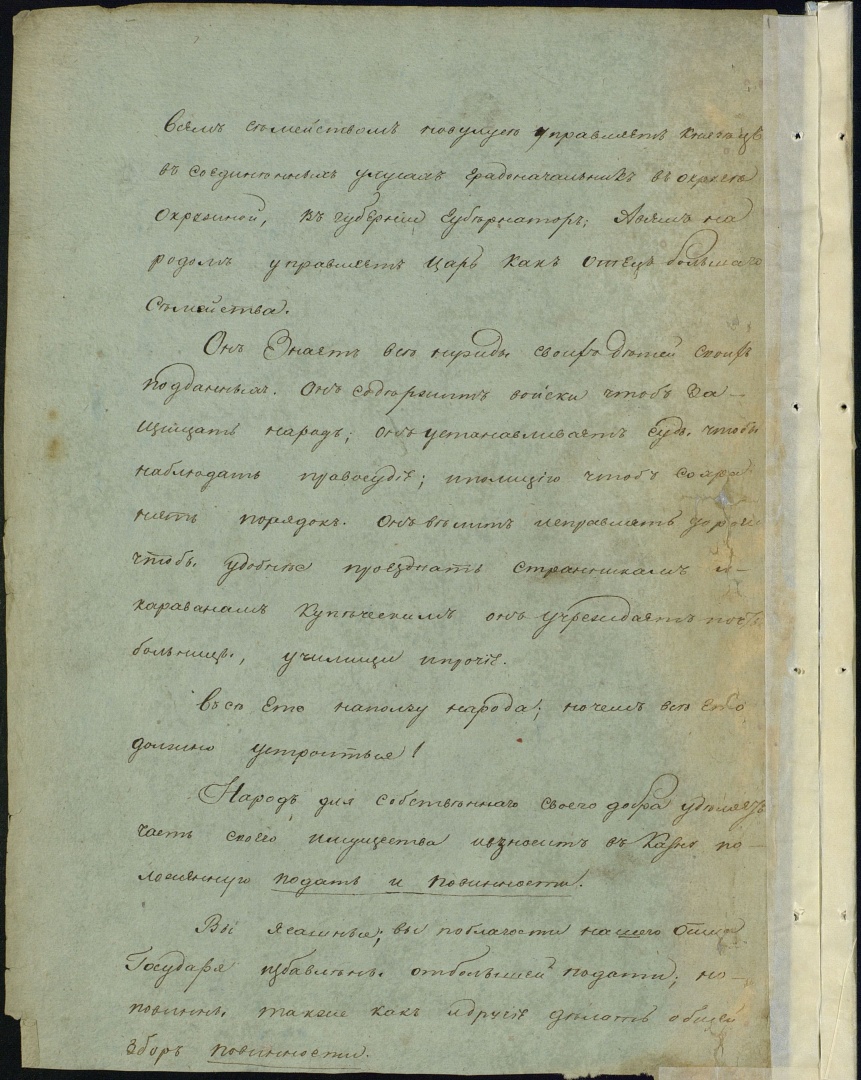 всемъ съмействомъ поулусно управляетъ Князецъ
въ соединенныхъ улусахъ градоначальникъ въ округе
Окружной, въ Губернии Губернаторъ; Авсемъ на
родомъ управляетъ Царь Какъ Отецъ большаго
Съмейства.
Онъ Знаетъ всю нужды своихъ Дѣтей своихъ
подданныхъ. Онъ содержитъ войски чтобъ За-
щищать народъ; онъ устанавливаетъ Судъ. чтобы
наблюдать правосудіе; иполицію чтобъ сохра
нять порядокъ. Онъ вѣлитъ исправлять дороги
чтобъ. удобнѣе проезжать странникамъ и-
караванамъ Купѣческимъ онъ учреждаетъ
больницы, училищи ипрочіе.
въсѣ Ето наползу народа; ночемъ всю Ето
должно устроиться!
Народъ для собственнаго своего добра удѣляетъ
часть своего имущества ивзноситъ въ Казну по-
ложенную подать и повинности.
Вы ясашные; вы поблагости нашего Отца
Государя избавлены. отбольшей подати; но-
повинны. также какъ идругіе дѣлать общей
Зборъ повинности.